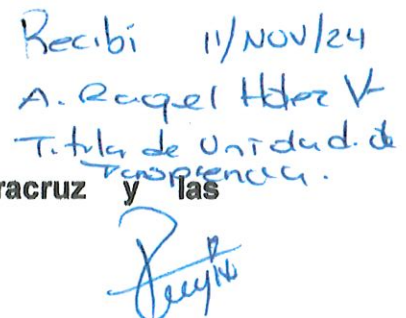 Recibí 11/NOV/24
A. Raquel Hdez V
Titular de Unidad de
Transparencia.
racruz y las